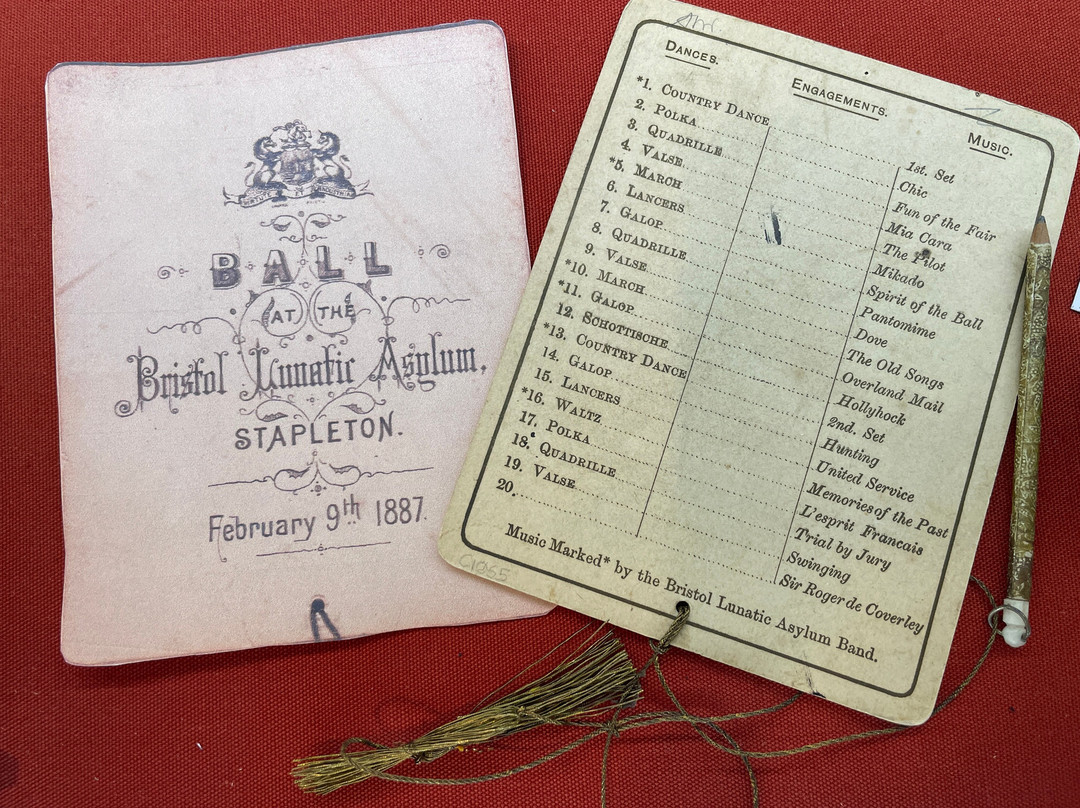 VIRTUTE ET INDUSTRIA
BALL
AT THE
Bristol Lunatic Asylum,
STAPLETON.
February 9th 1887.
DANCES. ENGAGEMENTS. MUSIC.
*1. COUNTRY DANCE 1st. Set
2. POLKA Chic
3. QUADRILLE Fun of the Fair
4. VALSE Mia Cara
*5. MARCH The Pilot
6. LANCERS Mikado
7. GALOP Spirit of the Ball
8. QUADRILLE Pantomime
9. VALSE Dove
*10. MARCH The Old Songs
*11. GALOP Overland Mail
12. SCHOTTISCHE Hollyhock
*13. COUNTRY DANCE 2nd. Set
14. GALOP Hunting
15. LANCERS United Service
*16. WALTZ Memories of the Past
17. POLKA L'esprit Francais
18. QUADRILLE Trial by Jury
19. VALSE Swinging
20. Sir Roger de Coverley
Music Marked* by the Bristol Lunatic Asylum Band.